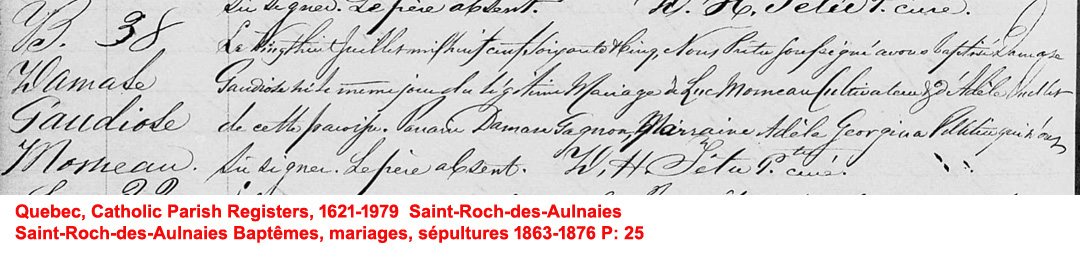 su signer. Le père absent. D. H. Têtu Ptre. curé.
B. 38
Le vingt huit Juillet mil huit cent soixante & cinq, Nous Prêtre soussigné avons baptisé Damase
Damase
Gaudiose né le même jour du légitime Mariage de Luc Morneau Cultivateur & d'Adèle Ouellet
Gaudiose
de cette paroisse. Parrain Damase Gagnon, Marraine Adèle Georgina Pelletier qui n'ont
Morneau.
su signer. Le père absent. D. H. Têtu Ptre curé.
Quebec, Catholic Parish Registers, 1621-1979 Saint-Roch-des-Aulnaies
Saint-Roch-des-Aulnaies Baptêmes, mariages, sépultures 1863-1876 P: 25